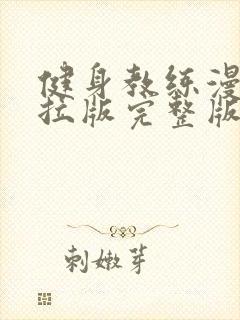 健身教练漫
拉版完整版
刺嫩芽